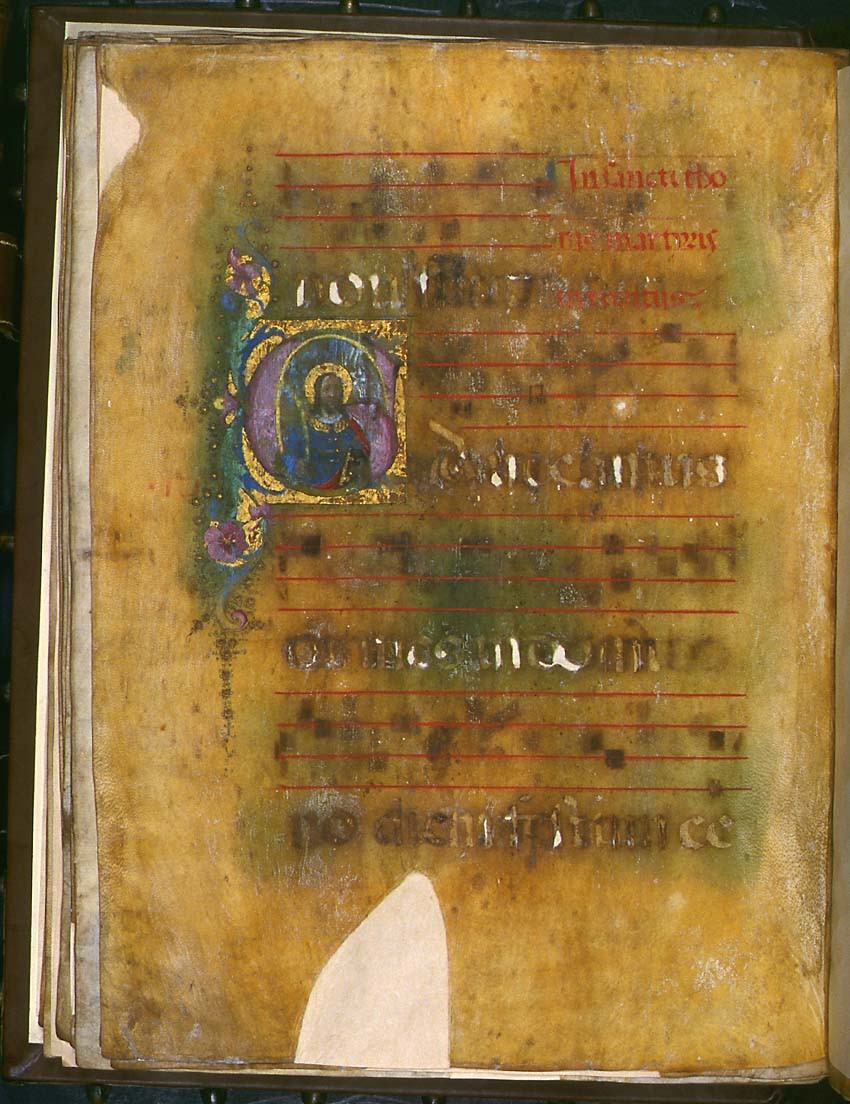 In sancti tho
me martyris
introitus
Gaudeamus
omnes in domi
no diem festum ce